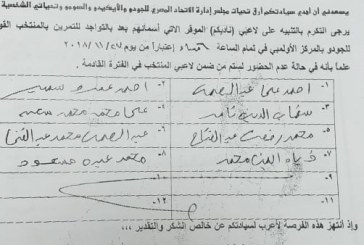 يسعدني أن أهدي سيادتكم أرق تحيات مجلس إدارة الاتحاد المصري للجودو والأيكيدو والسومو وتحياتي الشخصية
يرجى التكرم بالتنبيه على لاعبي (ناديكم) الموقر الآتي أسمائهم بعد بالتواجد للتمرين بالمنتخب القو
للجودو بالمركز الأولمبي في تمام الساعة اعتباراً من يوم ٢٠١٨/١١/٢٧
علماً بأنه في حالة عدم الحضور ليس من ضمن لاعبي المنتخب في الفترة القادمة.
١- احمد على عبد الصمد ٢- احمد سعيد
٣- شهاب الدين ٤- على محمد محمد سعيد
٥- محمد رفعت عبد الفتاح ٦- عبد الصمد محمد عبد الغنى
٧- ضياء الدين محمد ٨- محمد عبده مسعود
٩- ١٠-
١١- ١٢-
وإذ انتهز هذه الفرصة لأعرب لسيادتكم عن خالص الشكر والتقدير ...